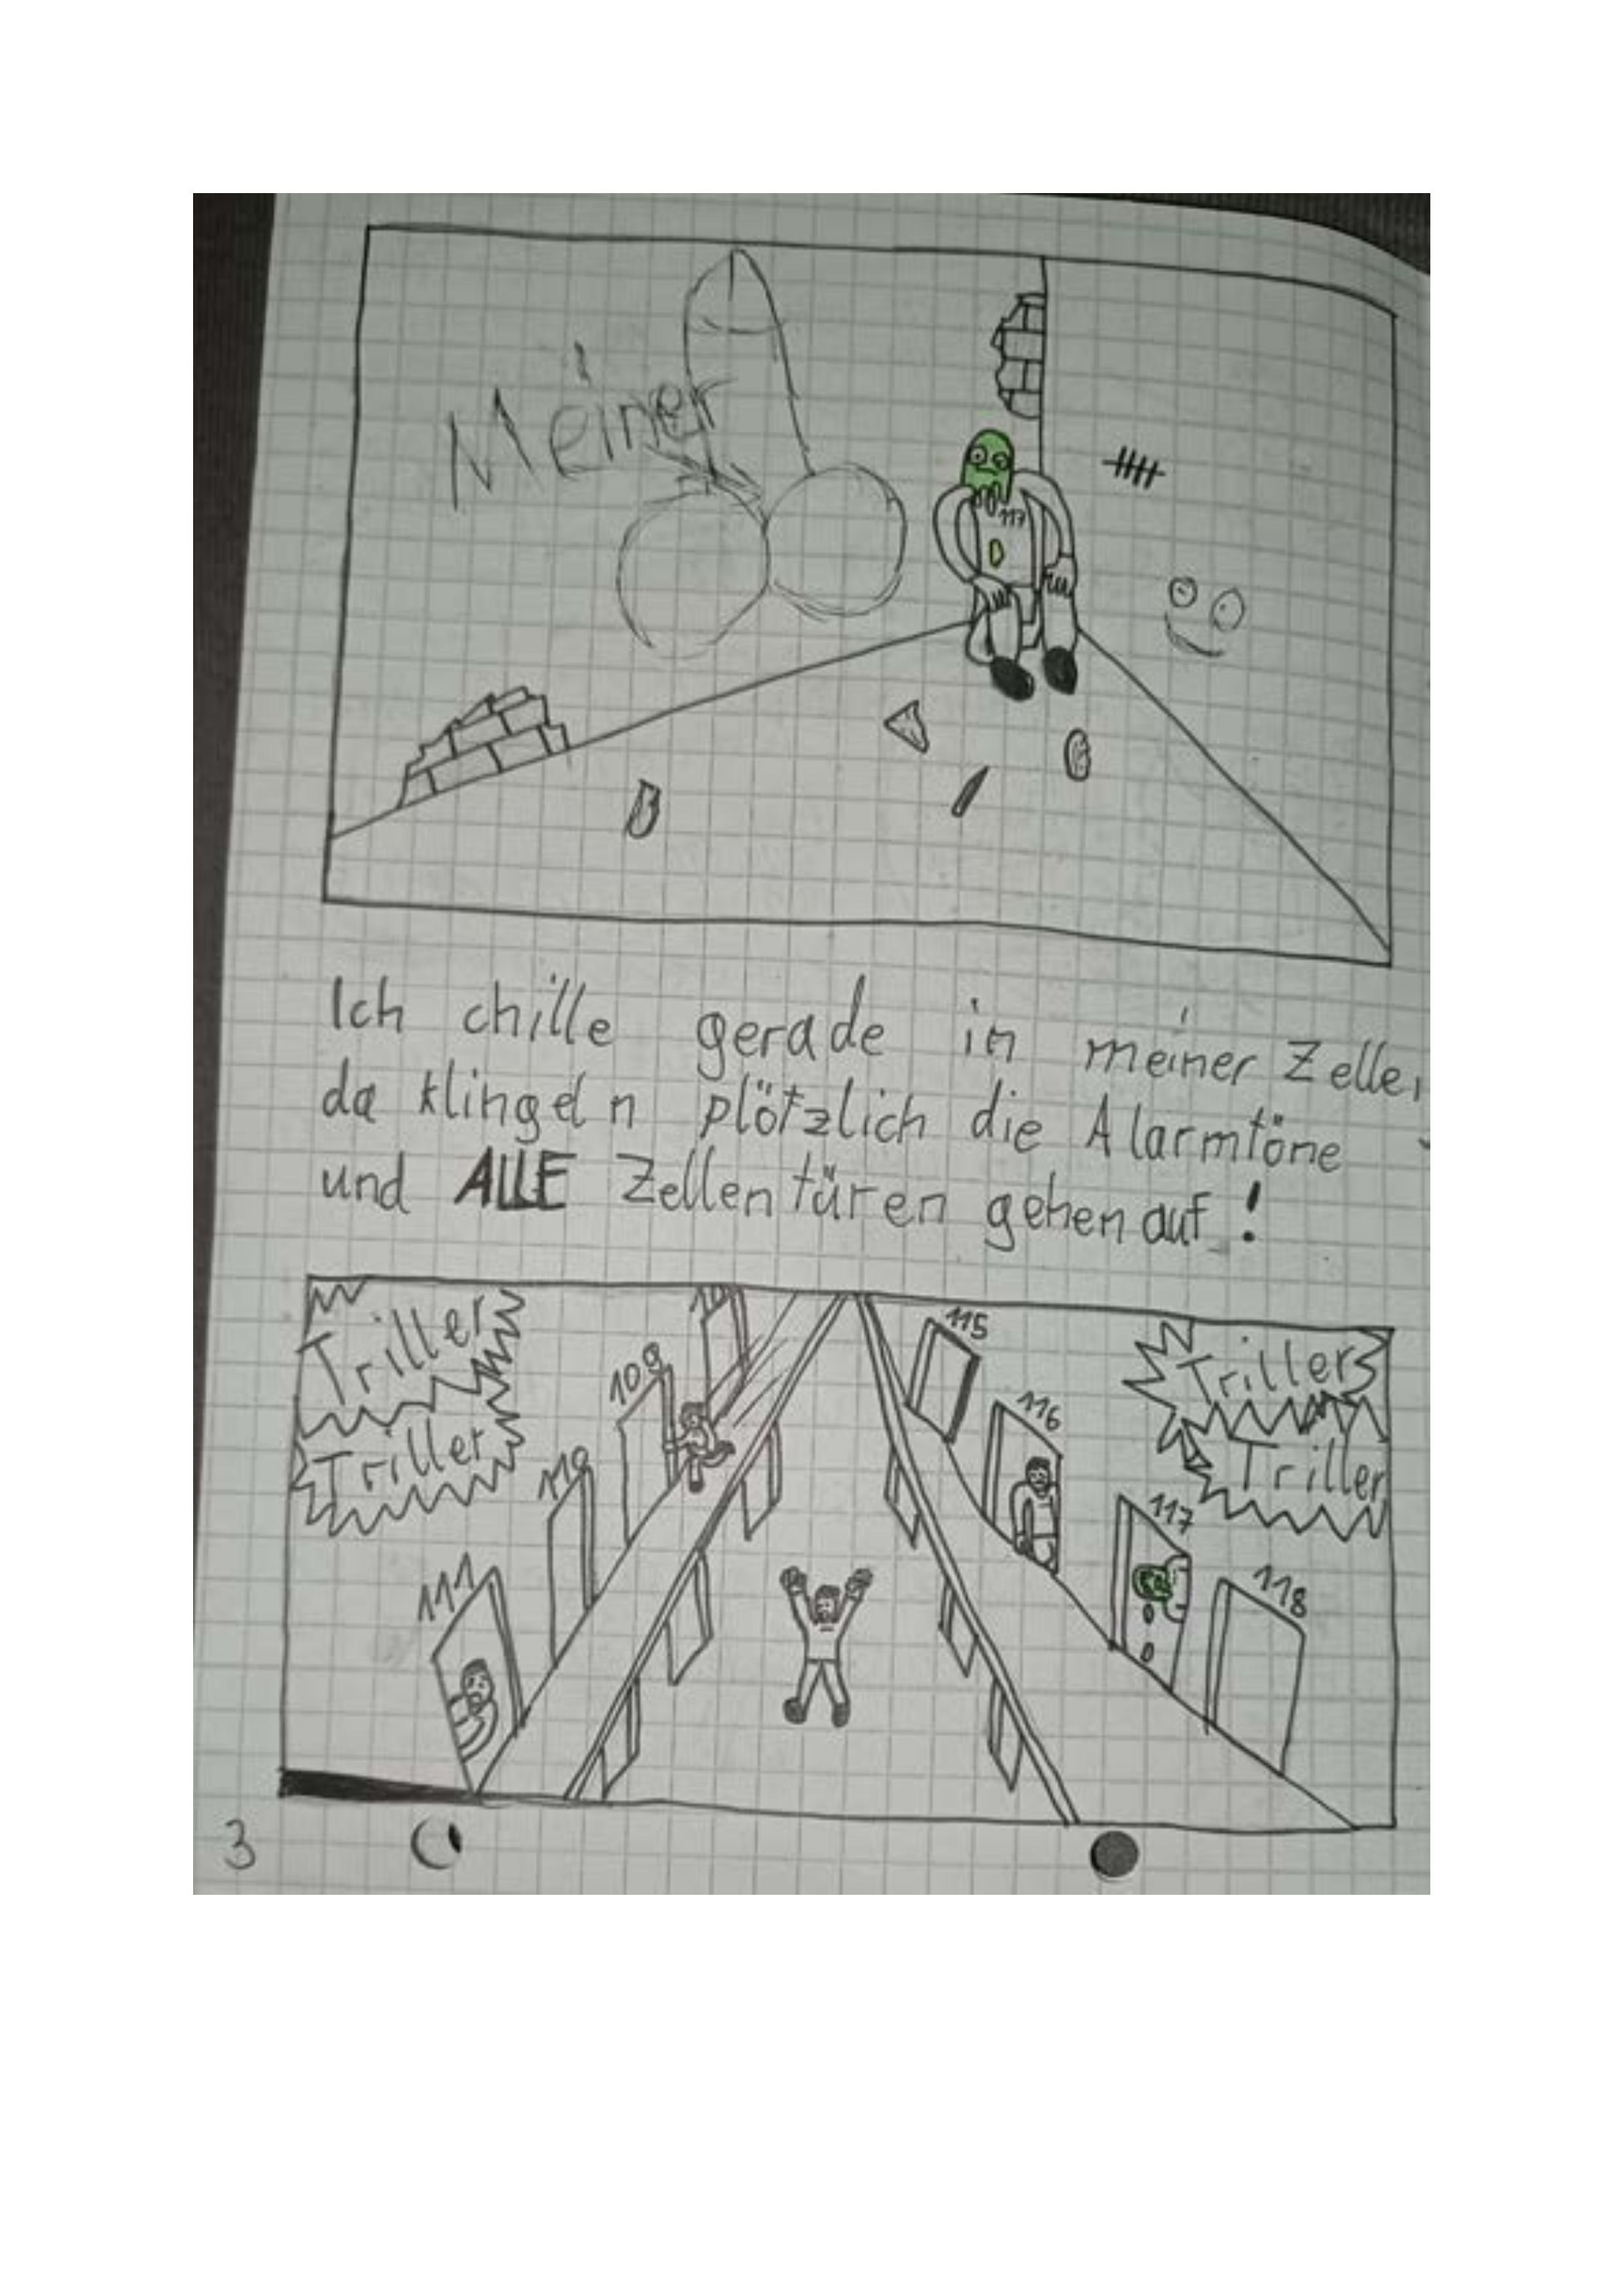 Meiner
117
Ich chille gerade in meiner Zelle,
da klingeln plötzlich die Alarmtöne
und ALLE Zellentüren gehen auf!
Triller
Triller
109
110
111
115
116
117
118
Triller
Triller
3